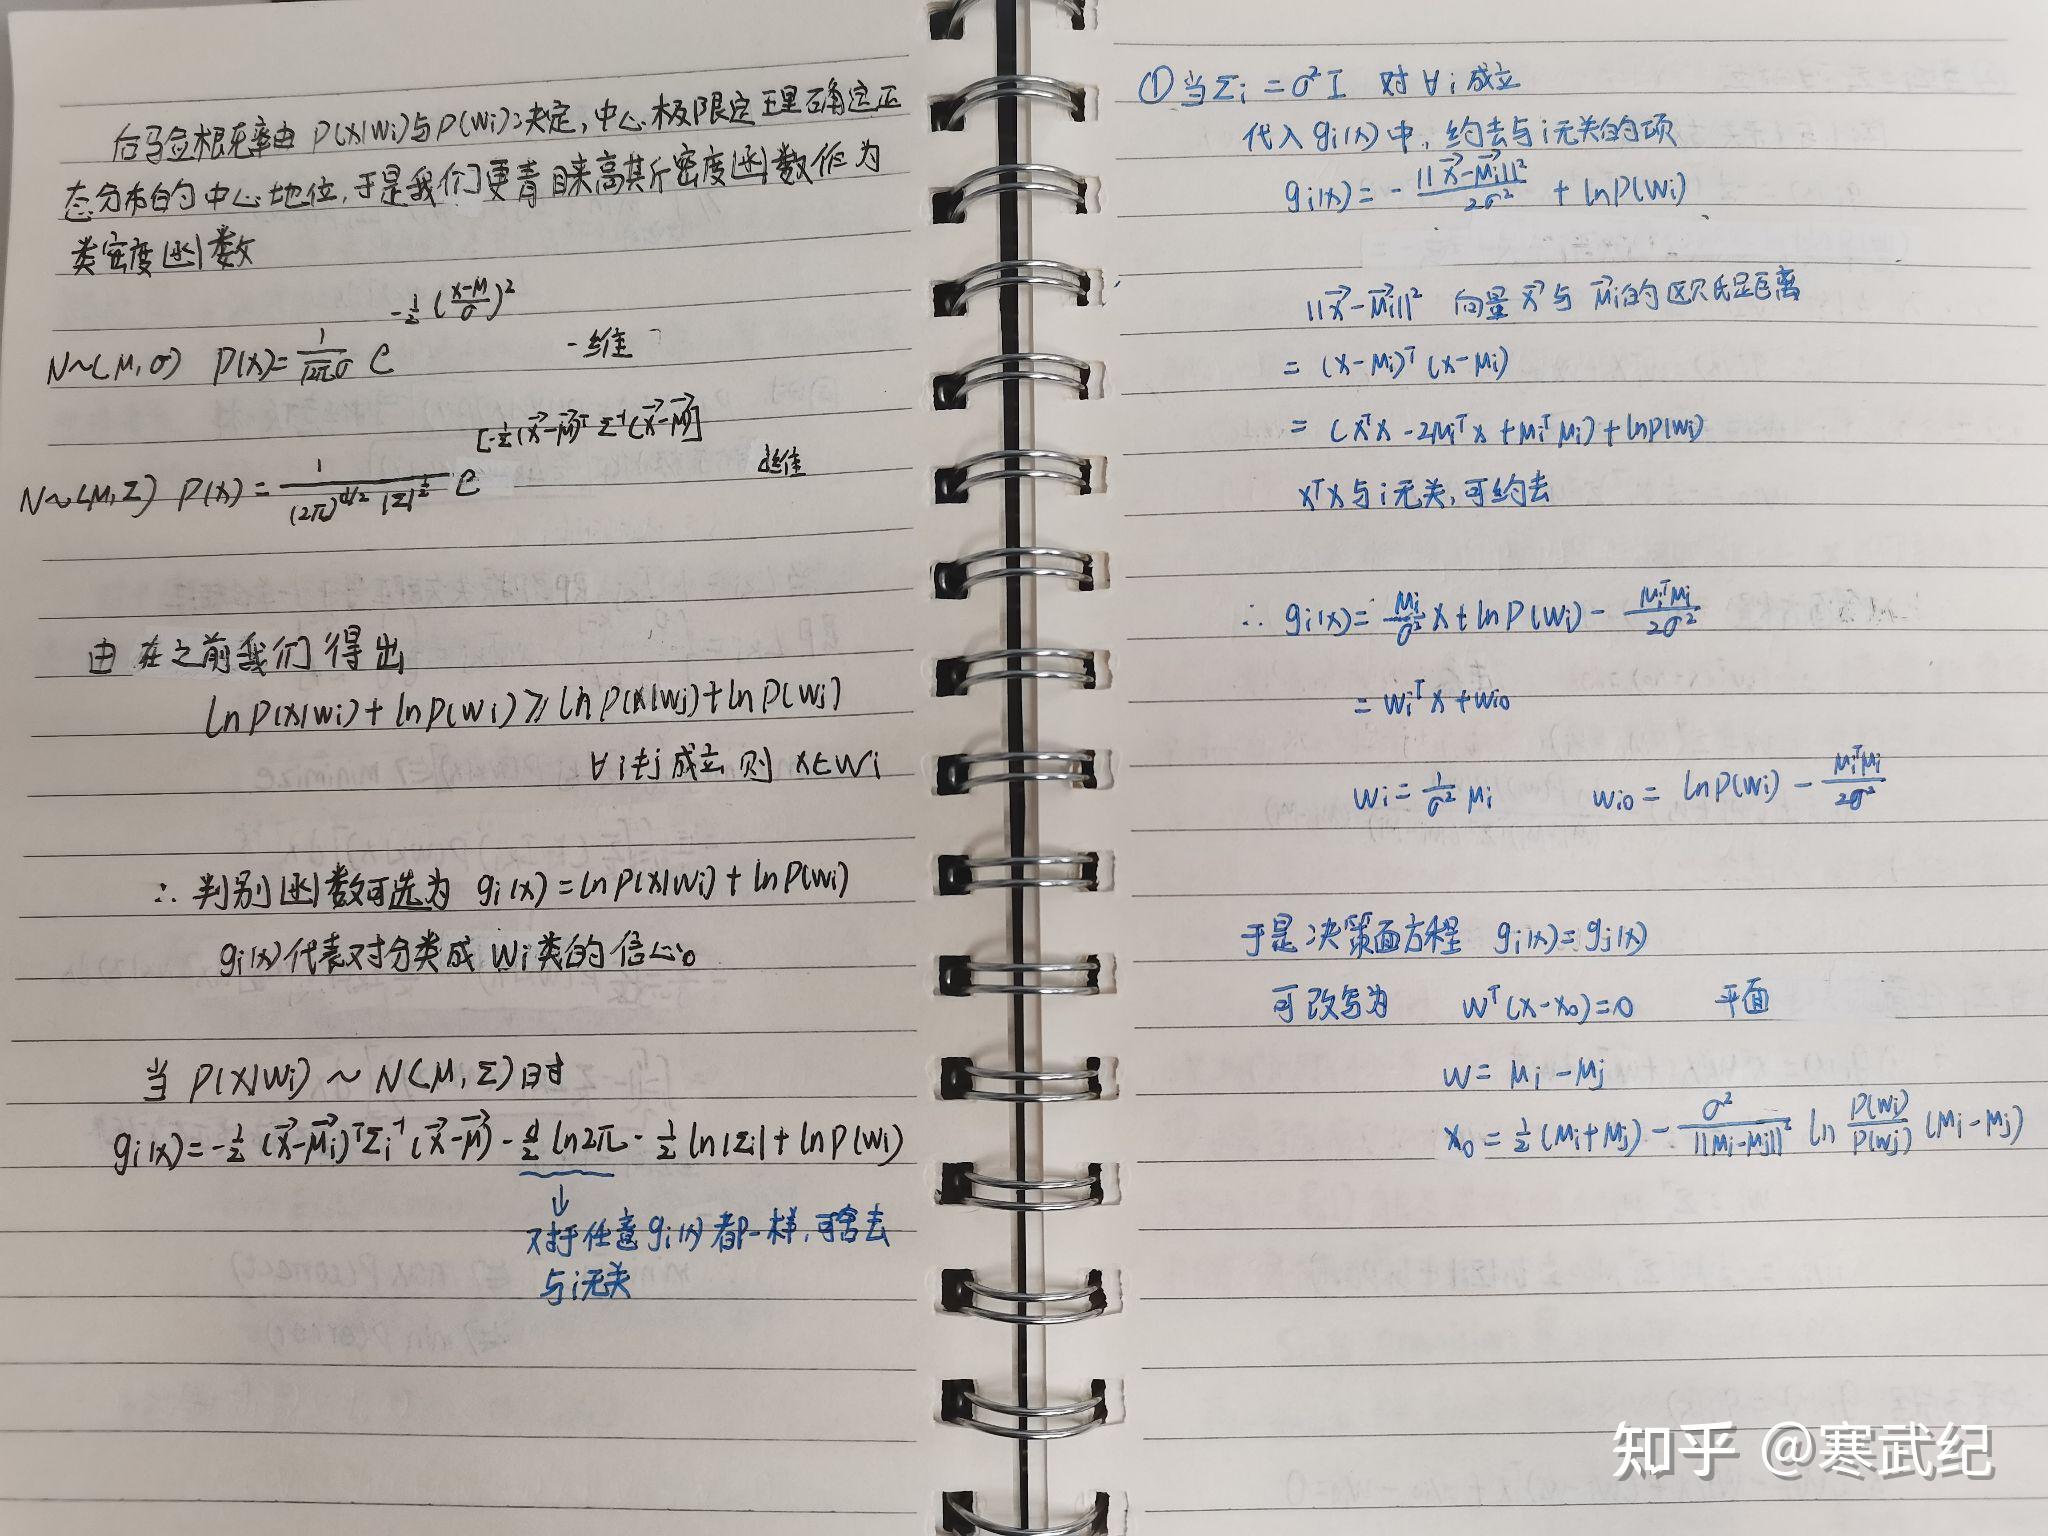 后验概率由 P(x|wi)与P(wi)决定,中心极限定理确定正
态分布的中心地位,于是我们更青睐高斯密度函数作为
类密度函数
N~(μ,σ) P(x)=1/(√2π σ) e^(-1/2 ((x-μ)/σ)^2) 一维
N~(μ,Σ) P(x)=1/((2π)^(d/2) |Σ|^(1/2)) e^[-1/2 (x⃗-μ⃗)^T Σ^-1 (x⃗-μ⃗)] d维
由在之前我们得出
lnP(x|wi)+lnP(wi)⩾lnP(x|wj)+lnP(wj)
∀i≠j成立则 x∈wi
∴ 判别函数可选为 gi(x)=lnP(x|wi)+lnP(wi)
gi(x)代表对分类成wi类的信心。
当 P(x|wi)~N(μ,Σ)时
gi(x)=-1/2 (x⃗-μ⃗i)^T Σi^-1 (x⃗-μ⃗)-d/2 ln2π-1/2 ln|Σi|+lnP(wi)
↓
对于任意gi(x)都一样,可舍去
与i无关
①当Σi=σ²I 对∀i成立
代入gi(x)中,约去与i无关的项
gi(x)=-||x⃗-μ⃗i||²/2σ² +lnP(wi)
||x⃗-μ⃗i||² 向量x⃗与μ⃗i的欧氏距离
=(x-μi)^T(x-μi)
=(x^Tx-2μi^Tx+μi^Tμi)+lnP(wi)
x^Tx与i无关,可约去
∴ gi(x)=μi/σ² x+lnP(wi)-μi^Tμi/2σ²
=wi^Tx+wi0
wi=1/σ² μi wi0=lnP(wi)-μi^Tμi/2σ²
于是决策面方程 gi(x)=gj(x)
可改写为 w^T(x-x0)=0 平面
w=μi-μj
x0=1/2(μi+μj)-σ²/||μi-μj||² ln P(wi)/P(wj) (μi-μj)
知乎 @寒武纪